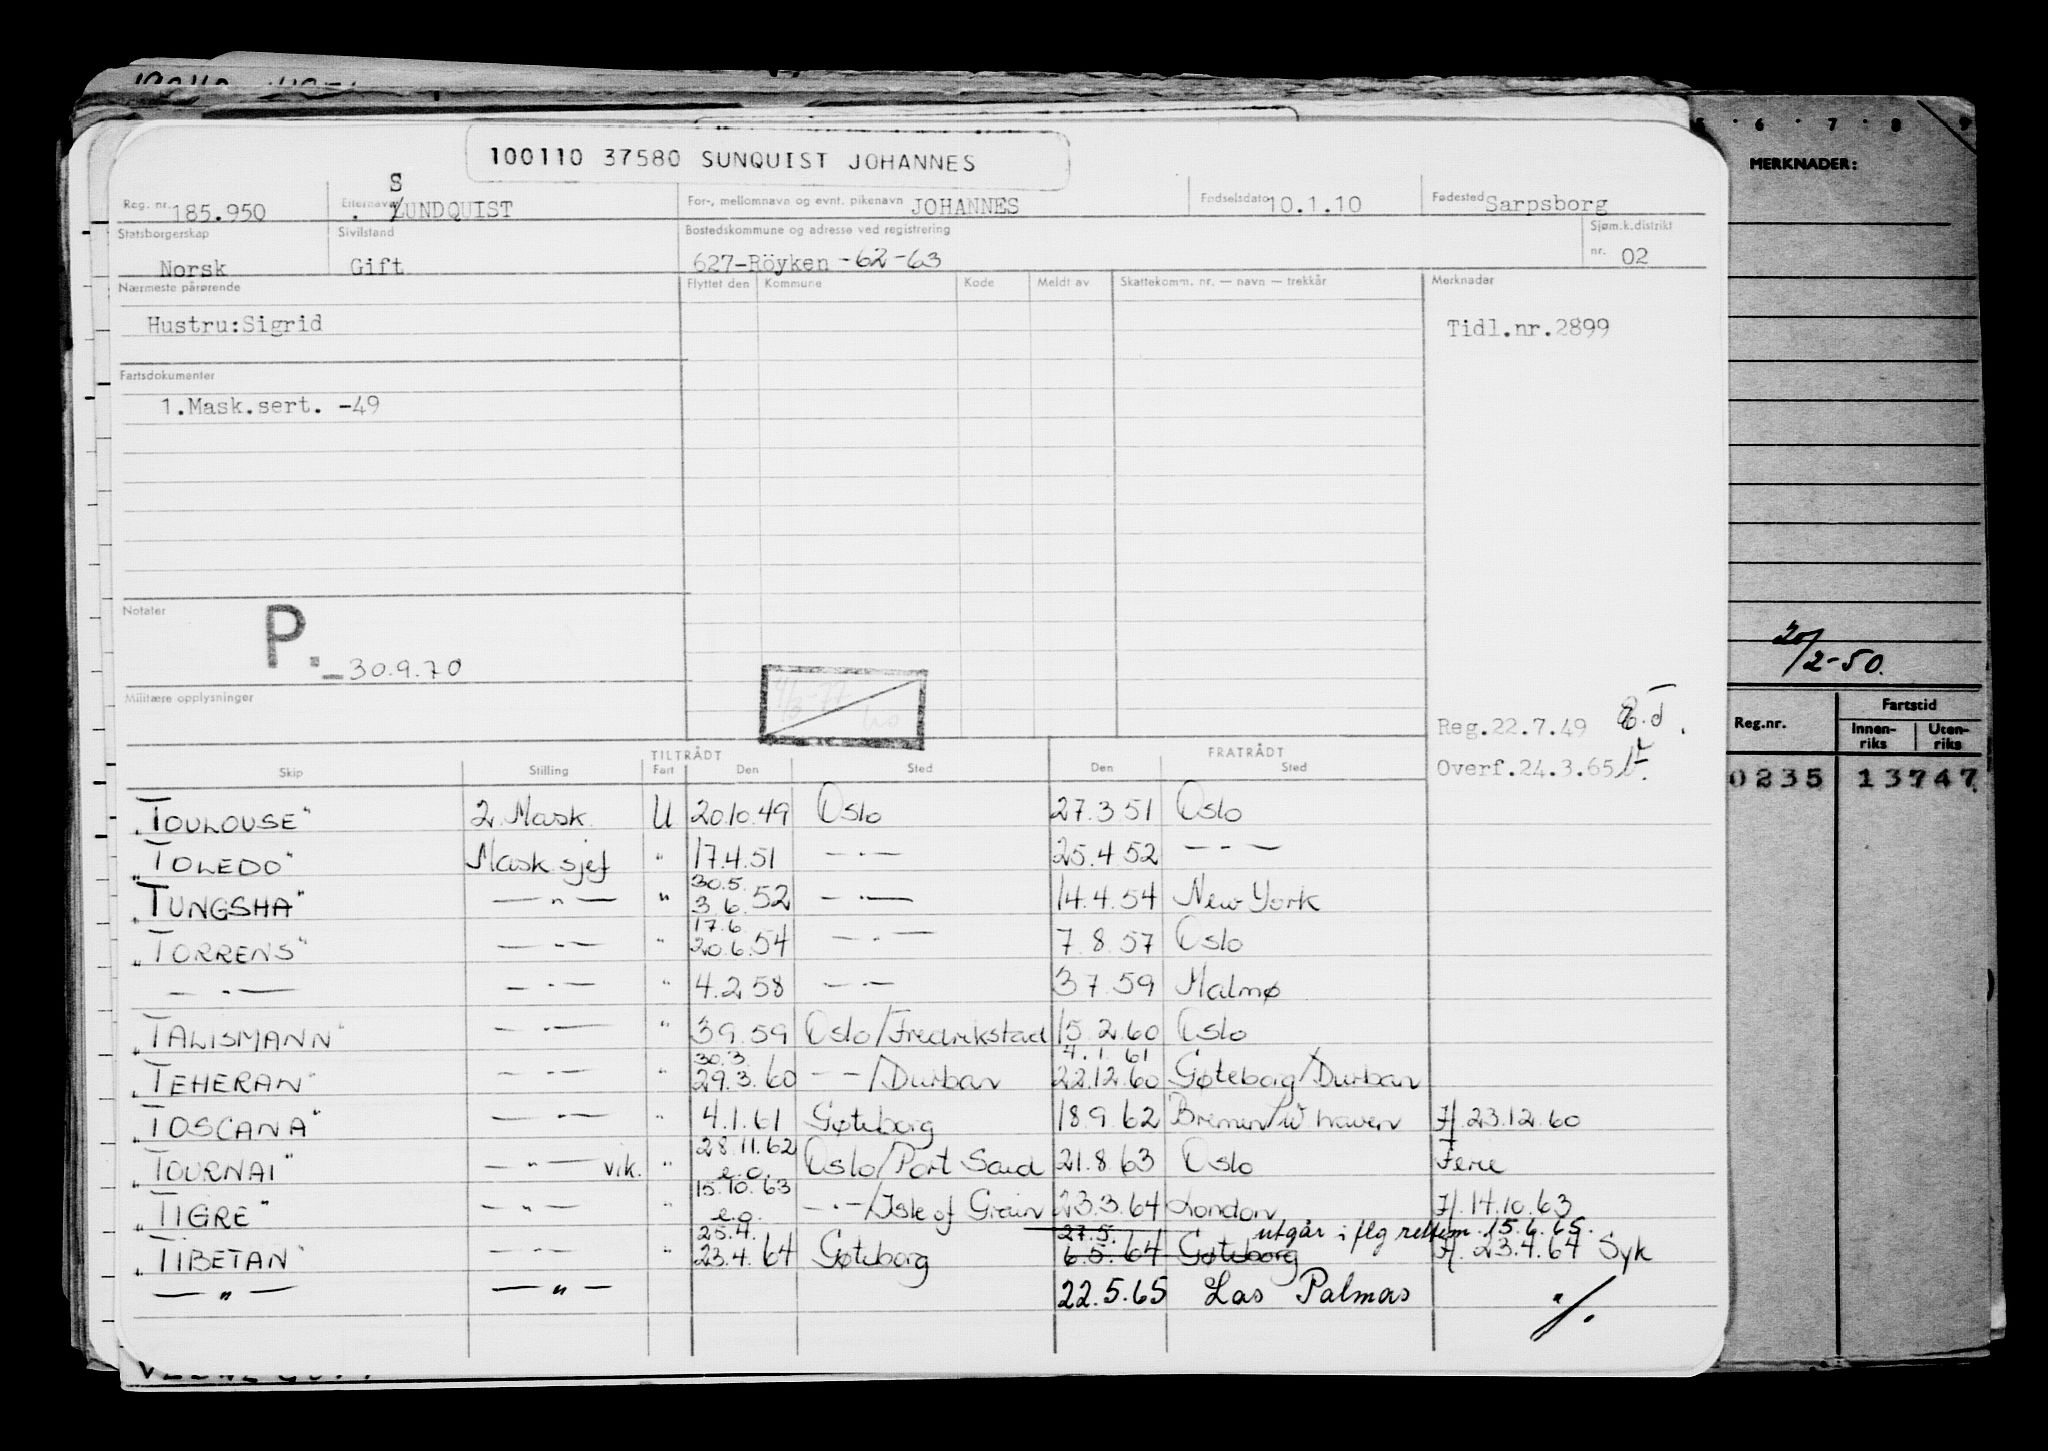 100110 37580 SUNQUIST JOHANNES
S
Reg. nr. 185.950 Etternavn LUNDQUIST For-, mellomnavn og evnt. pikenavn JOHANNES Fødselsdato 10.1.10 Fødested Sarpsborg
Statsborgerskap Sivilstand Bostedskommune og adresse ved registrering Sjøm.k.distrikt
Norsk Gift 627-Röyken -62-63 nr. 02
Nærmeste pårørende Flyttet den Kommune Kode Meldt av Skattekomm. nr. — navn — trekkår Merknader
Hustru:Sigrid Tidl.nr.2899
Fartsdokumenter
1.Mask.sert. -49
Notater
P. -30.9.70
Militære opplysninger
Reg.22.7.49
Overf.24.3.65
TILTRÅDT FRATRÅDT
Skip Stilling Fart Den Sted Den Sted
"TOULOUSE" 2. Mask. U 20.10.49 Oslo 27.3 51 Oslo
"TOLEDO" Mask sjef " 17.4.51 — " — 25.4 52 — " —
30.5.
"TUNGSHA" — " — " 3.6.52 — " — 14.4.54 New York
17.6.
"TORRENS" — " — " 20.6.54 — " — 7.8.57 Oslo
— " — — " — " 4.2 58 — " — 3 7.59 Malmø
"TALISMANN" — " — " 3.9.59 Oslo/Fredrikstad 15.2.60 Oslo
30.3. 4.1.61
"TEHERAN" — " — " 29.3.60 — " —/Durban 22.12.60 Gøteborg/Durban
"TOSCANA" — " — " 4.1.61 Gøteborg 18.9.62 Bremen/W haven Jf. 23.12.60
28.11.62
"TOURNAI" — " — vik. " e.o. Oslo/Port Said 21.8.63 Oslo Ferie
15.10.63
"TIGRE" — " — " e.o. — " —/Isle of Grain 23.3.64 London Jf. 14.10.63
25.4. 27.5. utgår i flg rettem. 15.6.65.
"TIBETAN" — " — " 23.4.64 Gøteborg 6.5.64 Gøteborg Jf. 23.4.64 Syk
— " — — " — 22.5.65 Las Palmas "/.
6 7 8 9
MERKNADER:
20/2-50.
Reg.nr. Fartstid
Innenriks Utenriks
0235 13747